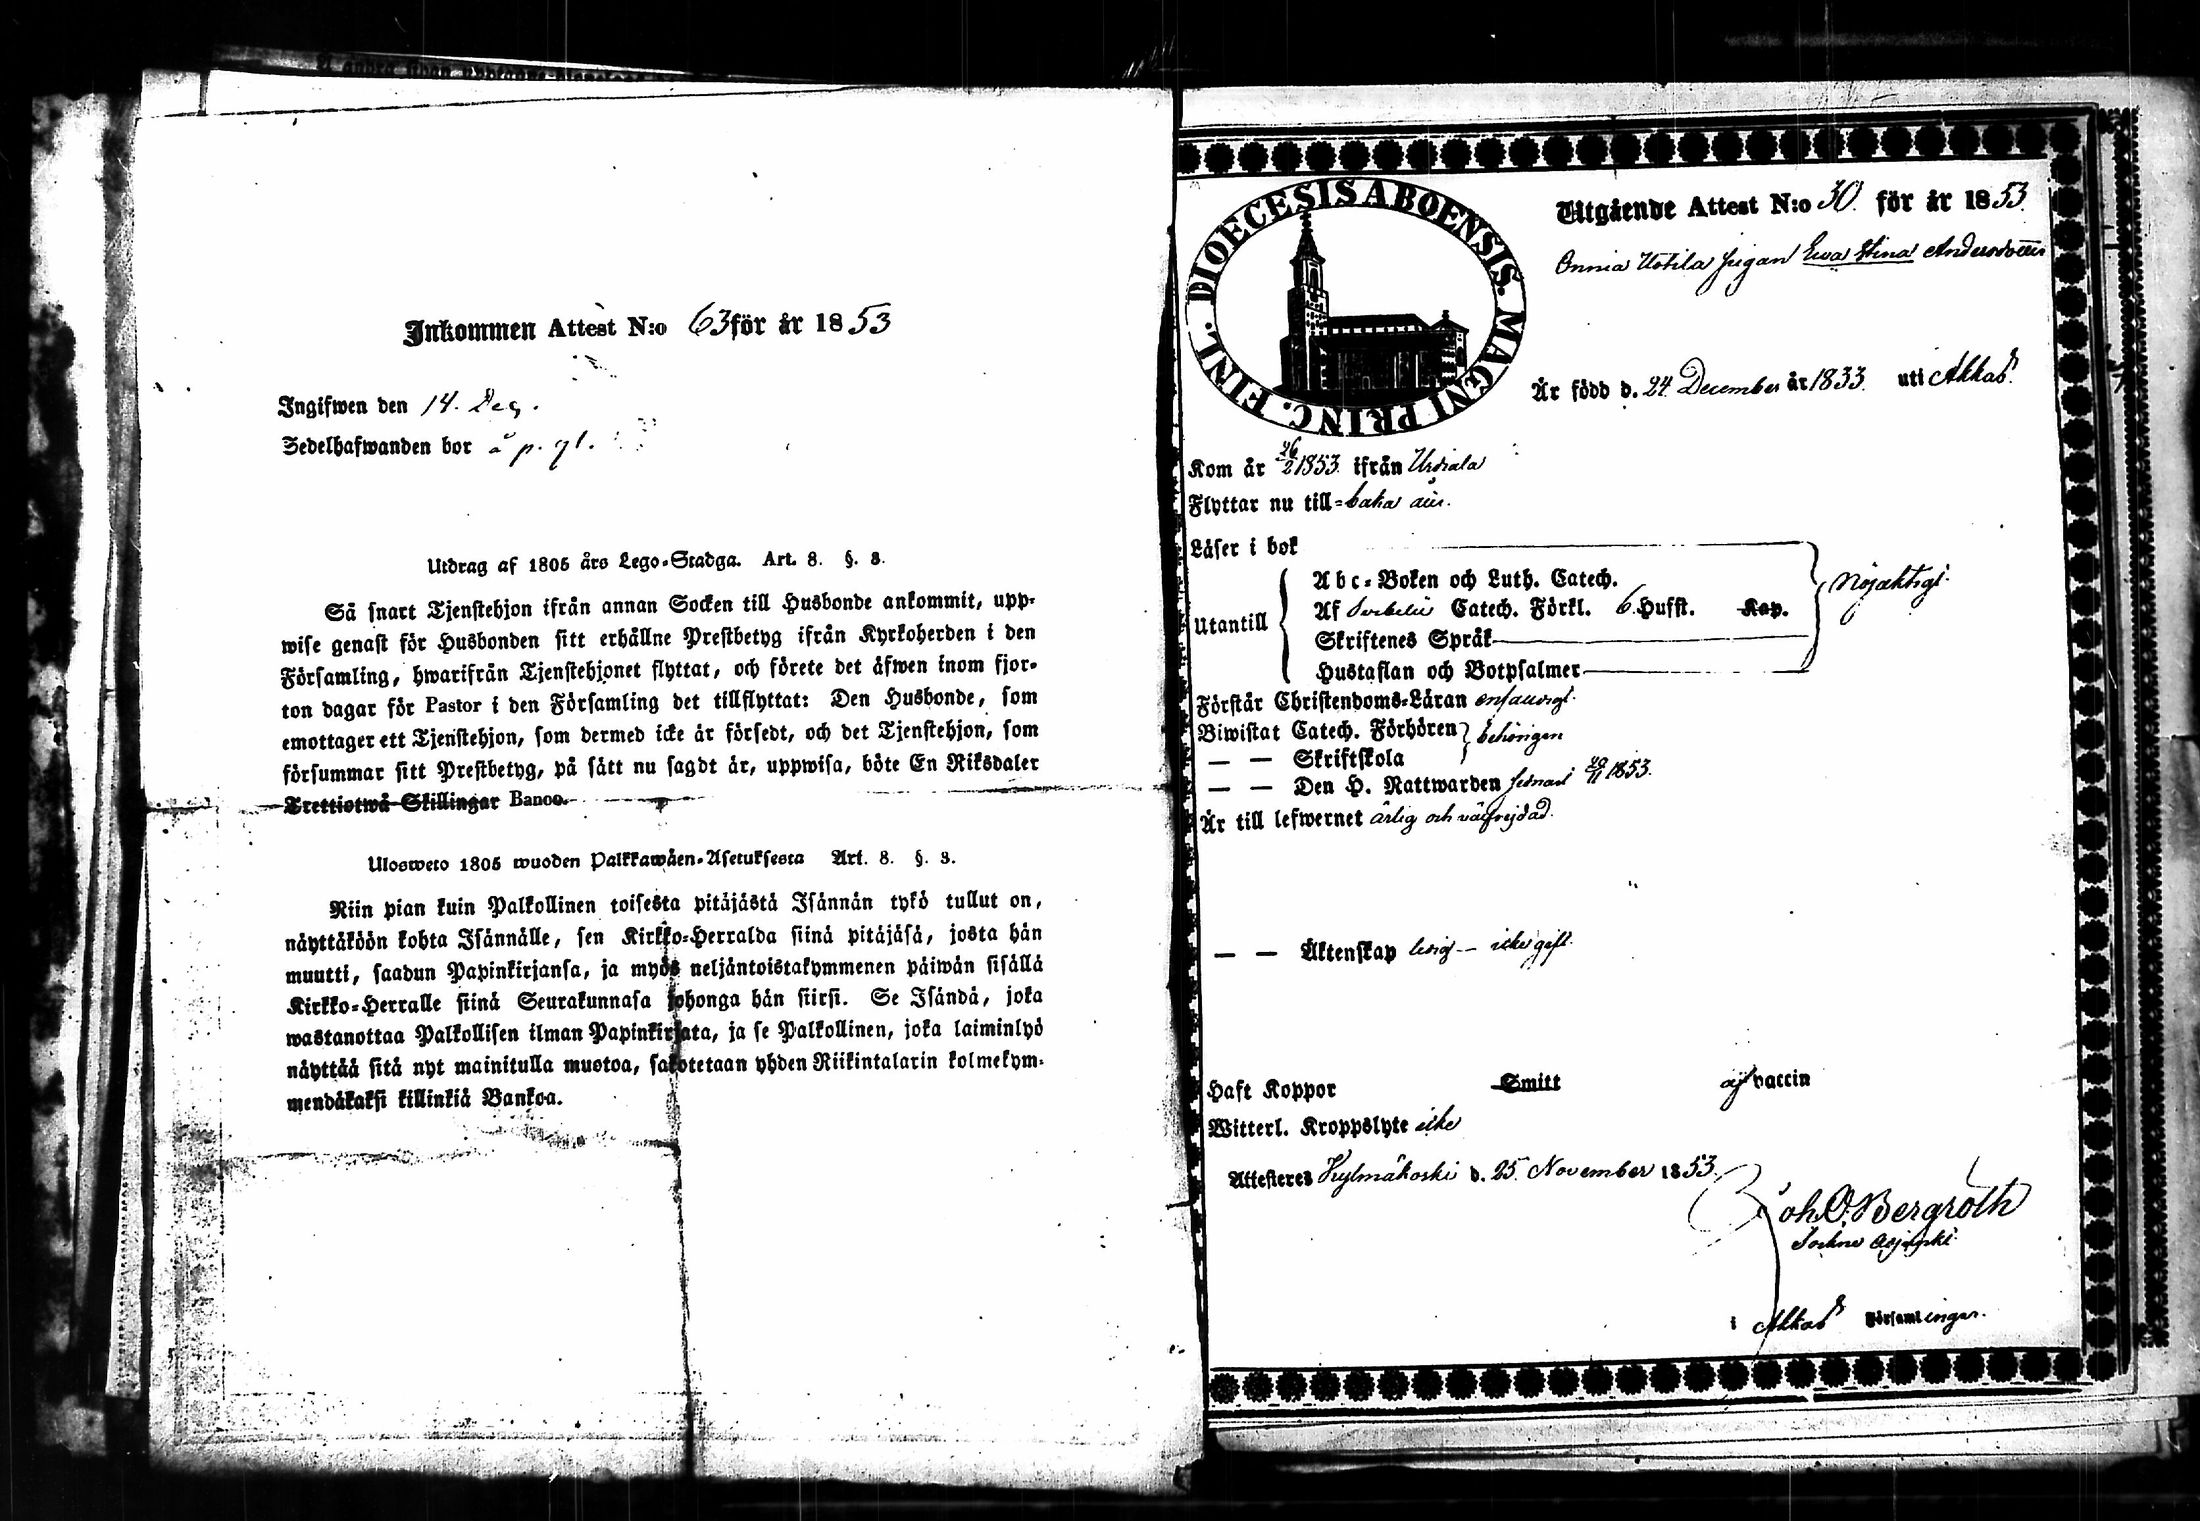 Inkommen Attest N:o 63 för år 1853
Ingifwen den 14. Dec.
Sedelhafwanden bor å p. gl.
Utdrag af 1805 års Lego-Stadga. Art. 8. §. 3.
Så snart Tjenstehjon ifrån annan Socken till Husbonde ankommit, upp-
wise genast för Husbonden sitt erhållne Prestbetyg ifrån Kyrkoherden i den
Församling, hwarifrån Tjenstehjonet flyttat, och förete det äfwen inom fjor-
ton dagar för Pastor i den Församling det tillflyttat: Den Husbonde, som
emottager ett Tjenstehjon, som dermed icke är försedt, och det Tjenstehjon, som
försummar sitt Prestbetyg, på sätt nu sagdt är, uppwisa, böte En Riksdaler
Trettiotwå Skillingar Banco.
Ulosweto 1805 wuoden Palkkawäen-Asetuksesta Art. 8. §. 3.
Niin pian kuin Palkollinen toisesta pitäjästä Isännän tykö tullut on,
näyttäköön kohta Isännälle, sen Kirkko-Herralda siinä pitäjäsä, josta hän
muutti, saadun Papinkirjansa, ja myös neljäntoistakymmenen päiwän sisällä
Kirkko-Herralle siinä Seurakunnasa johonga hän siirsi. Se Isändä, joka
wastanottaa Palkollisen ilman Papinkirjata, ja se Palkollinen, joka laiminlyö
näyttää sitä nyt mainitulla muotoa, sakotetaan yhden Riikintalarin kolmekym-
mendäkaksi killinkiä Bankoa.
DIOECESIS ABOENSIS. MAGNI PRINC. FINL.
Utgående Attest N:o 30. för år 1853
Onnia Uotila pigan Ewa Stina Andersdotter
Är född d. 24 December år 1833. uti Akkas.
Kom år 26/2 1853. ifrån Urdiala
Flyttar nu till-baka
Läser i bok
Utantill
Abc-Boken och Luth. Catech.
Af Svebelii Catech. Förkl. 6 Hufst. Kap.
Skriftenes Språk
Hustaflan och Botpsalmer
Nöjaktigt.
Förstår Christendoms-Läran enfaldigt.
Biwistat Catech. Förhören
behörigen
— — Skriftskola
— — Den H. Nattwarden senast 20/11 1853.
Är till lefwernet ärlig och välfrejdad.
— — Äktenskap ledig — icke gift.
Haft Koppor Smitt af vaccin
Witterl. Kroppslyte icke
Attesteres Kylmäkoski d. 25. November 1853.
Joh. O. Bergroth
Sockne Adjunkt
i Akkas Församlingar.